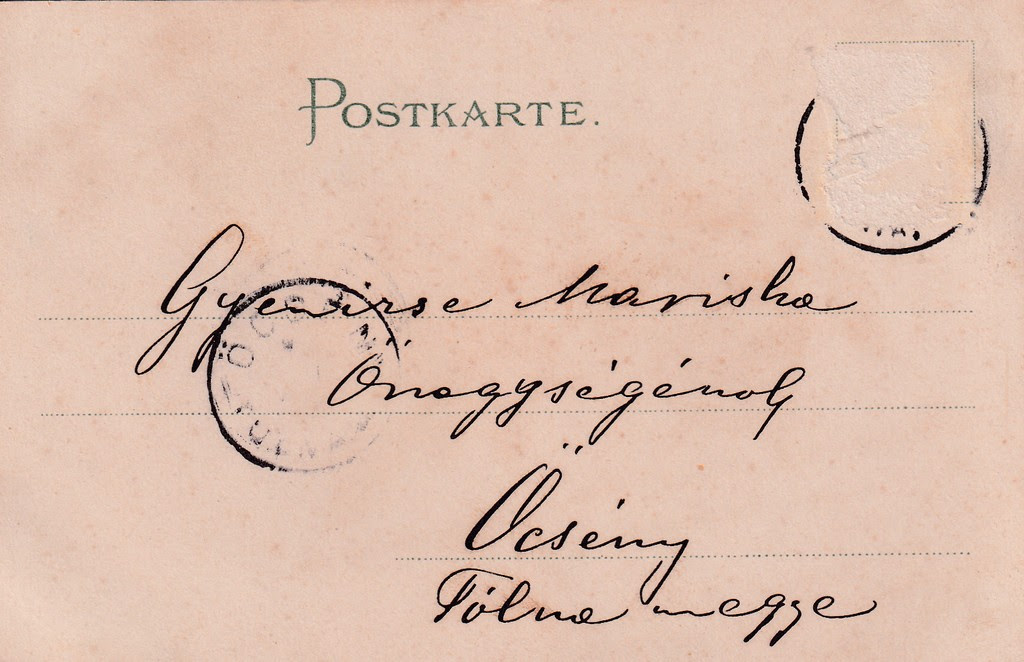 POSTKARTE.
Gyenirse Mariska
Önagyságénak
Öcsény
Tolna megye
ŐCSÉNY